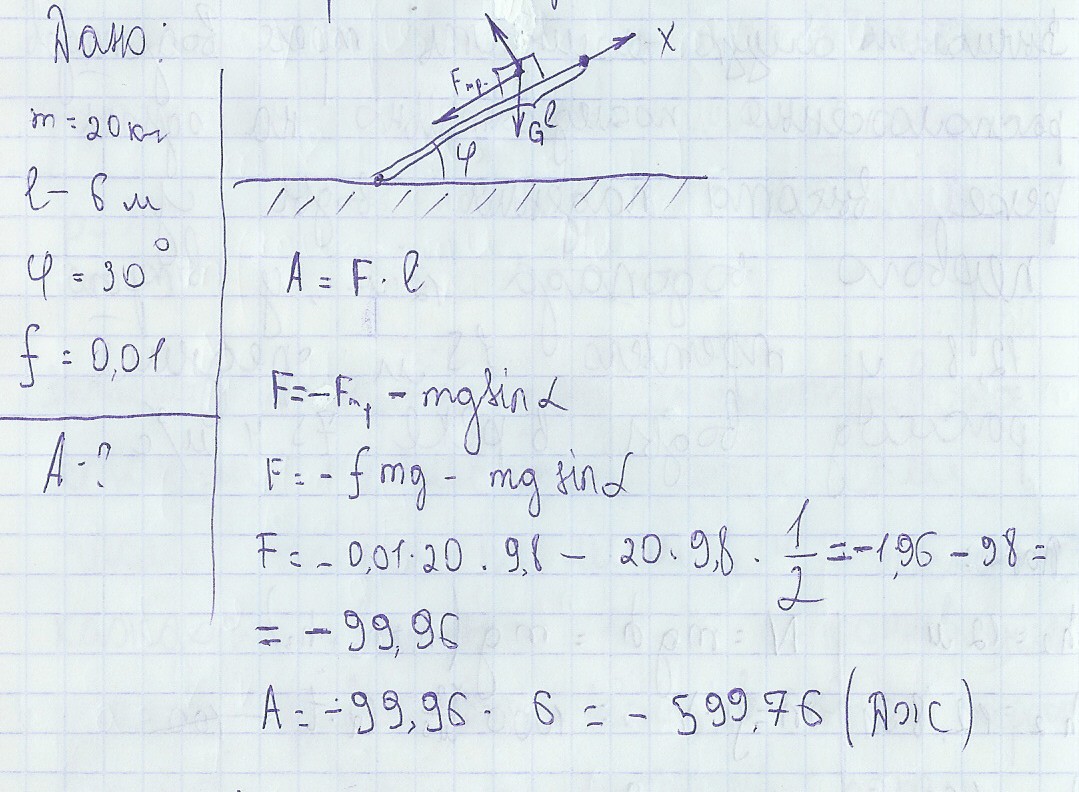 Дано:
m = 20 кг
l - 6 м
φ = 30°
f = 0,01
A - ?
X
Fтр.
G
l
φ
A = F · l
F = -Fтр - mg sin α
F = - f mg - mg sin α
F = - 0,01 · 20 · 9,8 - 20 · 9,8 · 1/2 = -1,96 - 98 =
= - 99,96
A = -99,96 · 6 = - 599,76 (Дж)